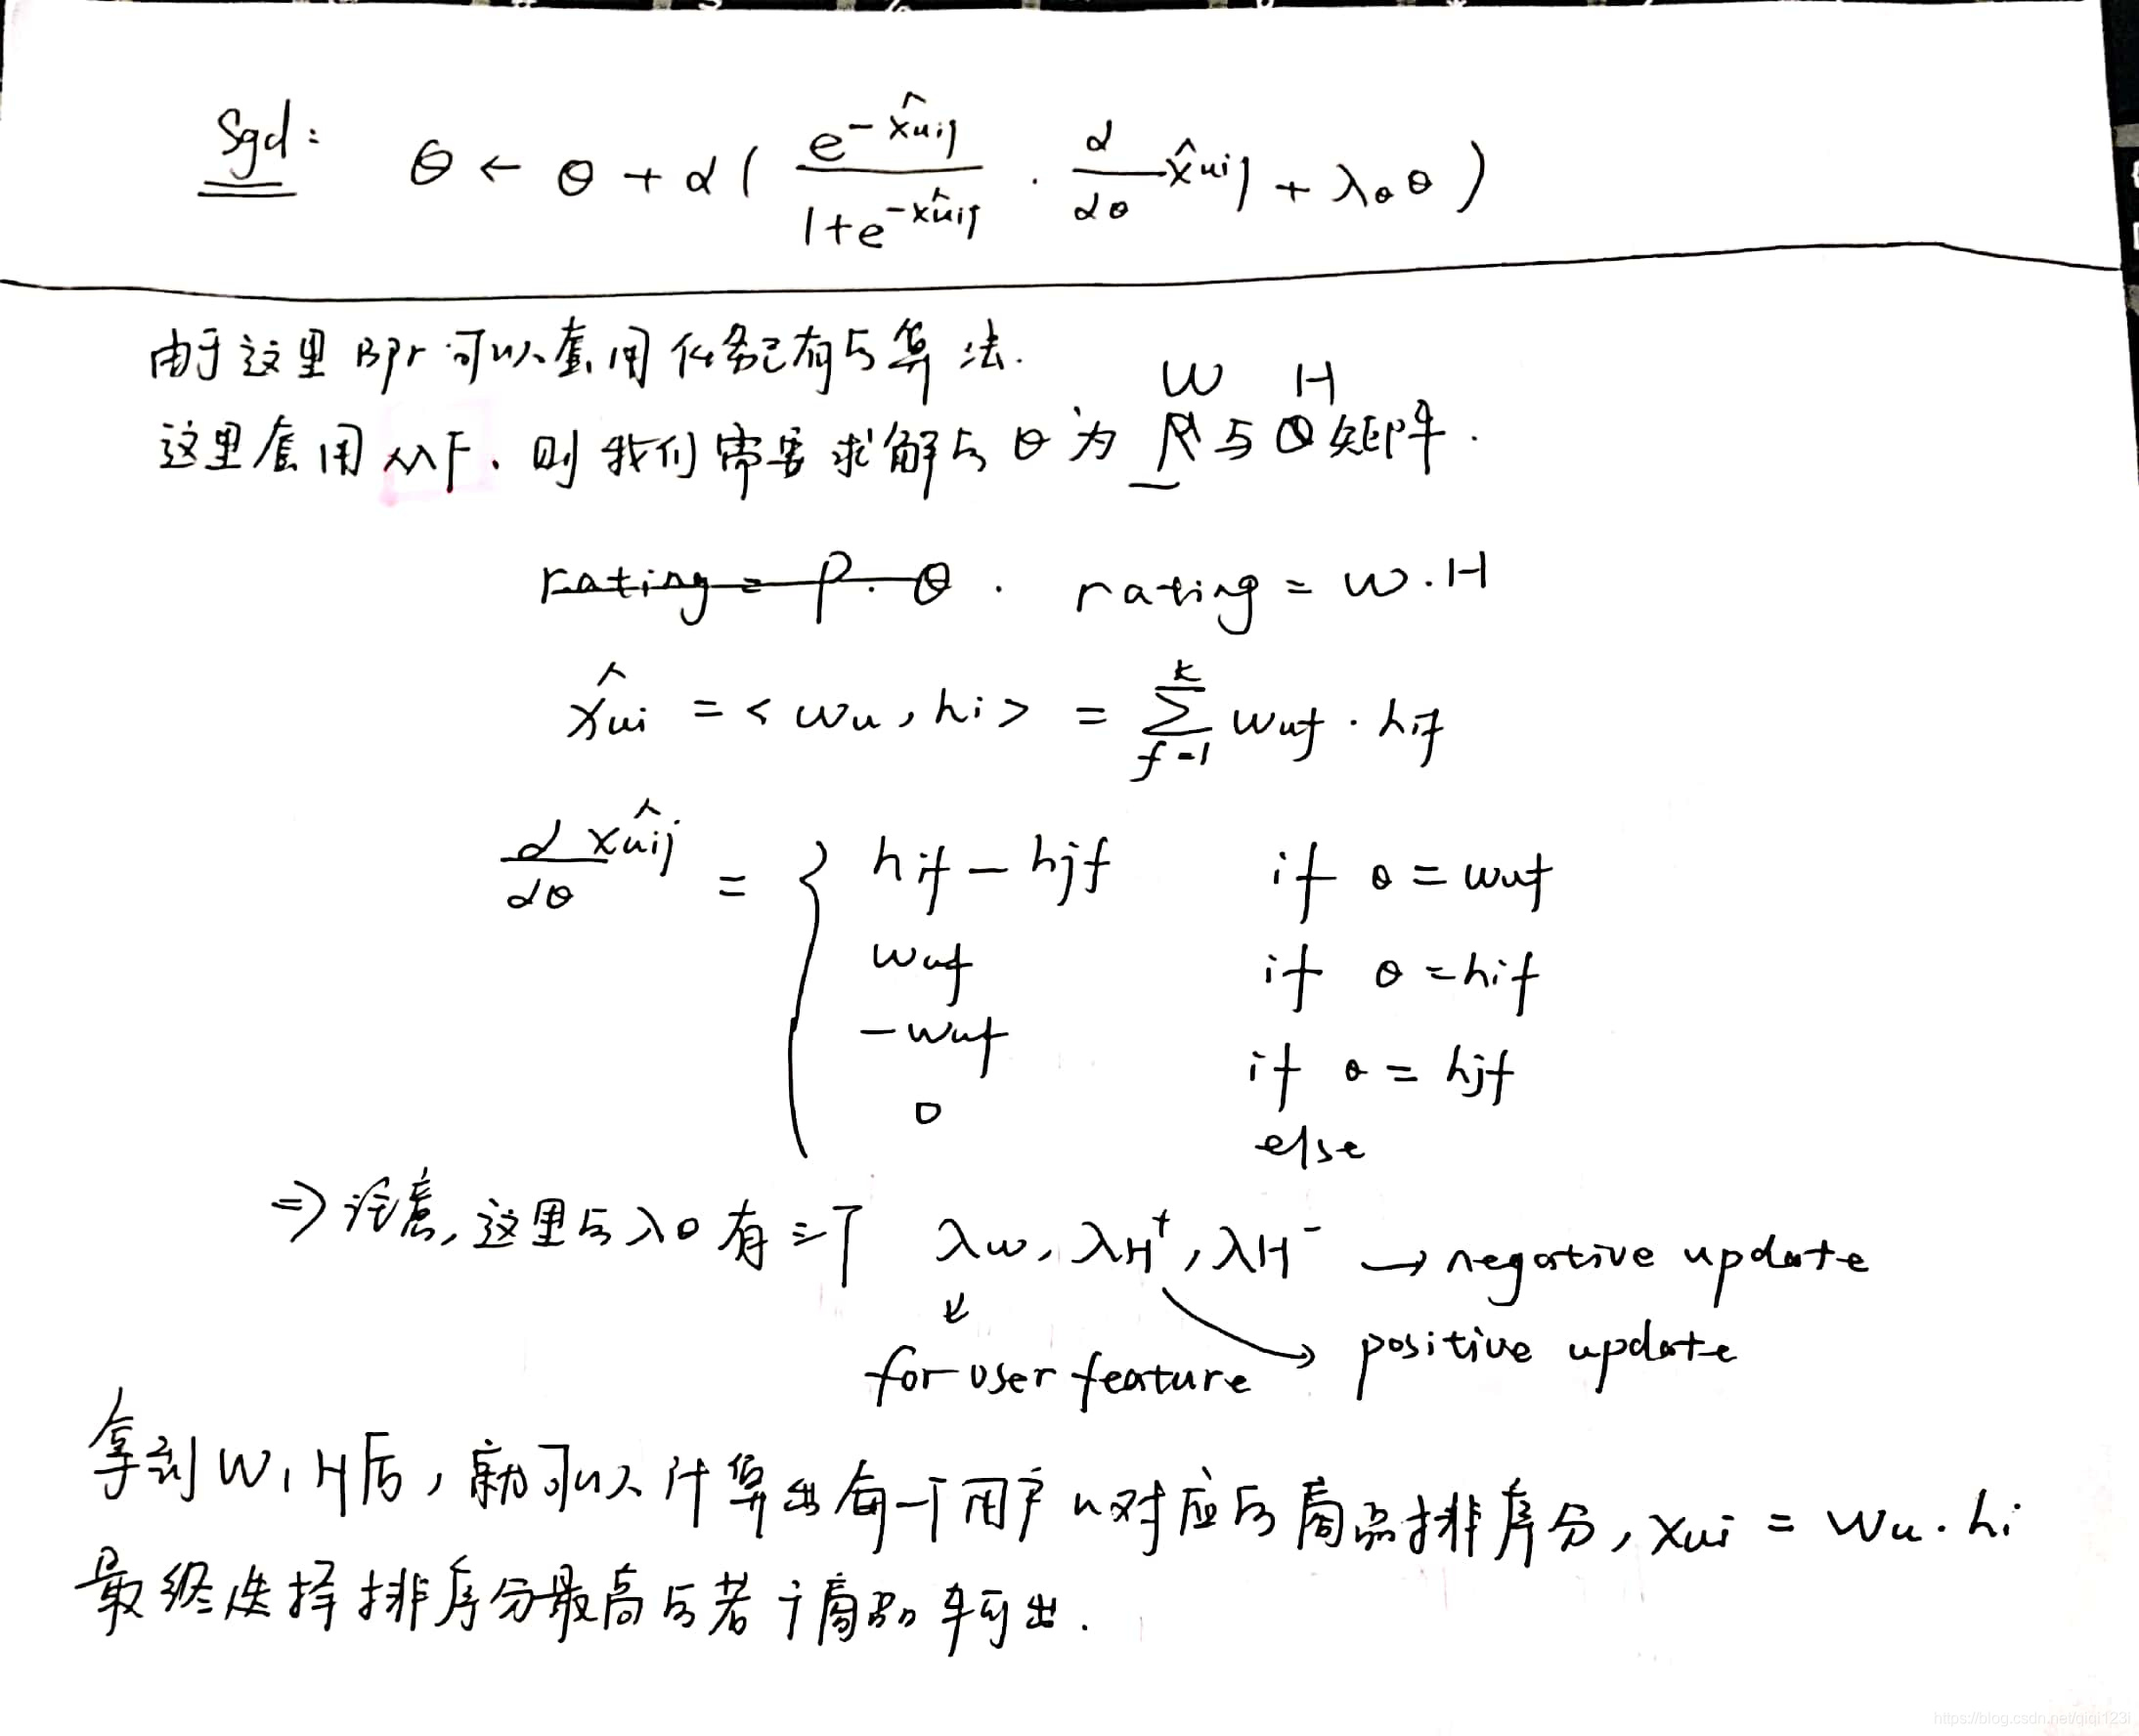 Sgd: θ ← θ + α ( e^{-x̂uij} / 1+e^{-x̂uij} · d/dθ x̂uij + λθ θ )
由于这里 Bpr 可以套用任务已有的算法.
W H
这里套用 MF、则我们需要求解的 θ 为 与 矩阵.
rating = P · Q . rating = W.H
x̂ui = < wu , hi > = Σ_{f=1}^{k} wuf · hif
d x̂uij / dθ = { hif - hjf if θ = wuf
wuf if θ = hif
-wuf if θ = hjf
0 else
⇒ 注意, 这里的 λθ 有三个 λw, λH⁺, λH⁻ → negative update
for user feature → positive update
拿到 W, H后, 就可以计算出每一个用户 u对应的商品排序分, xui = wu · hi
最终选择排序分最高的若干商品输出.
https://blog.csdn.net/qiqi123i